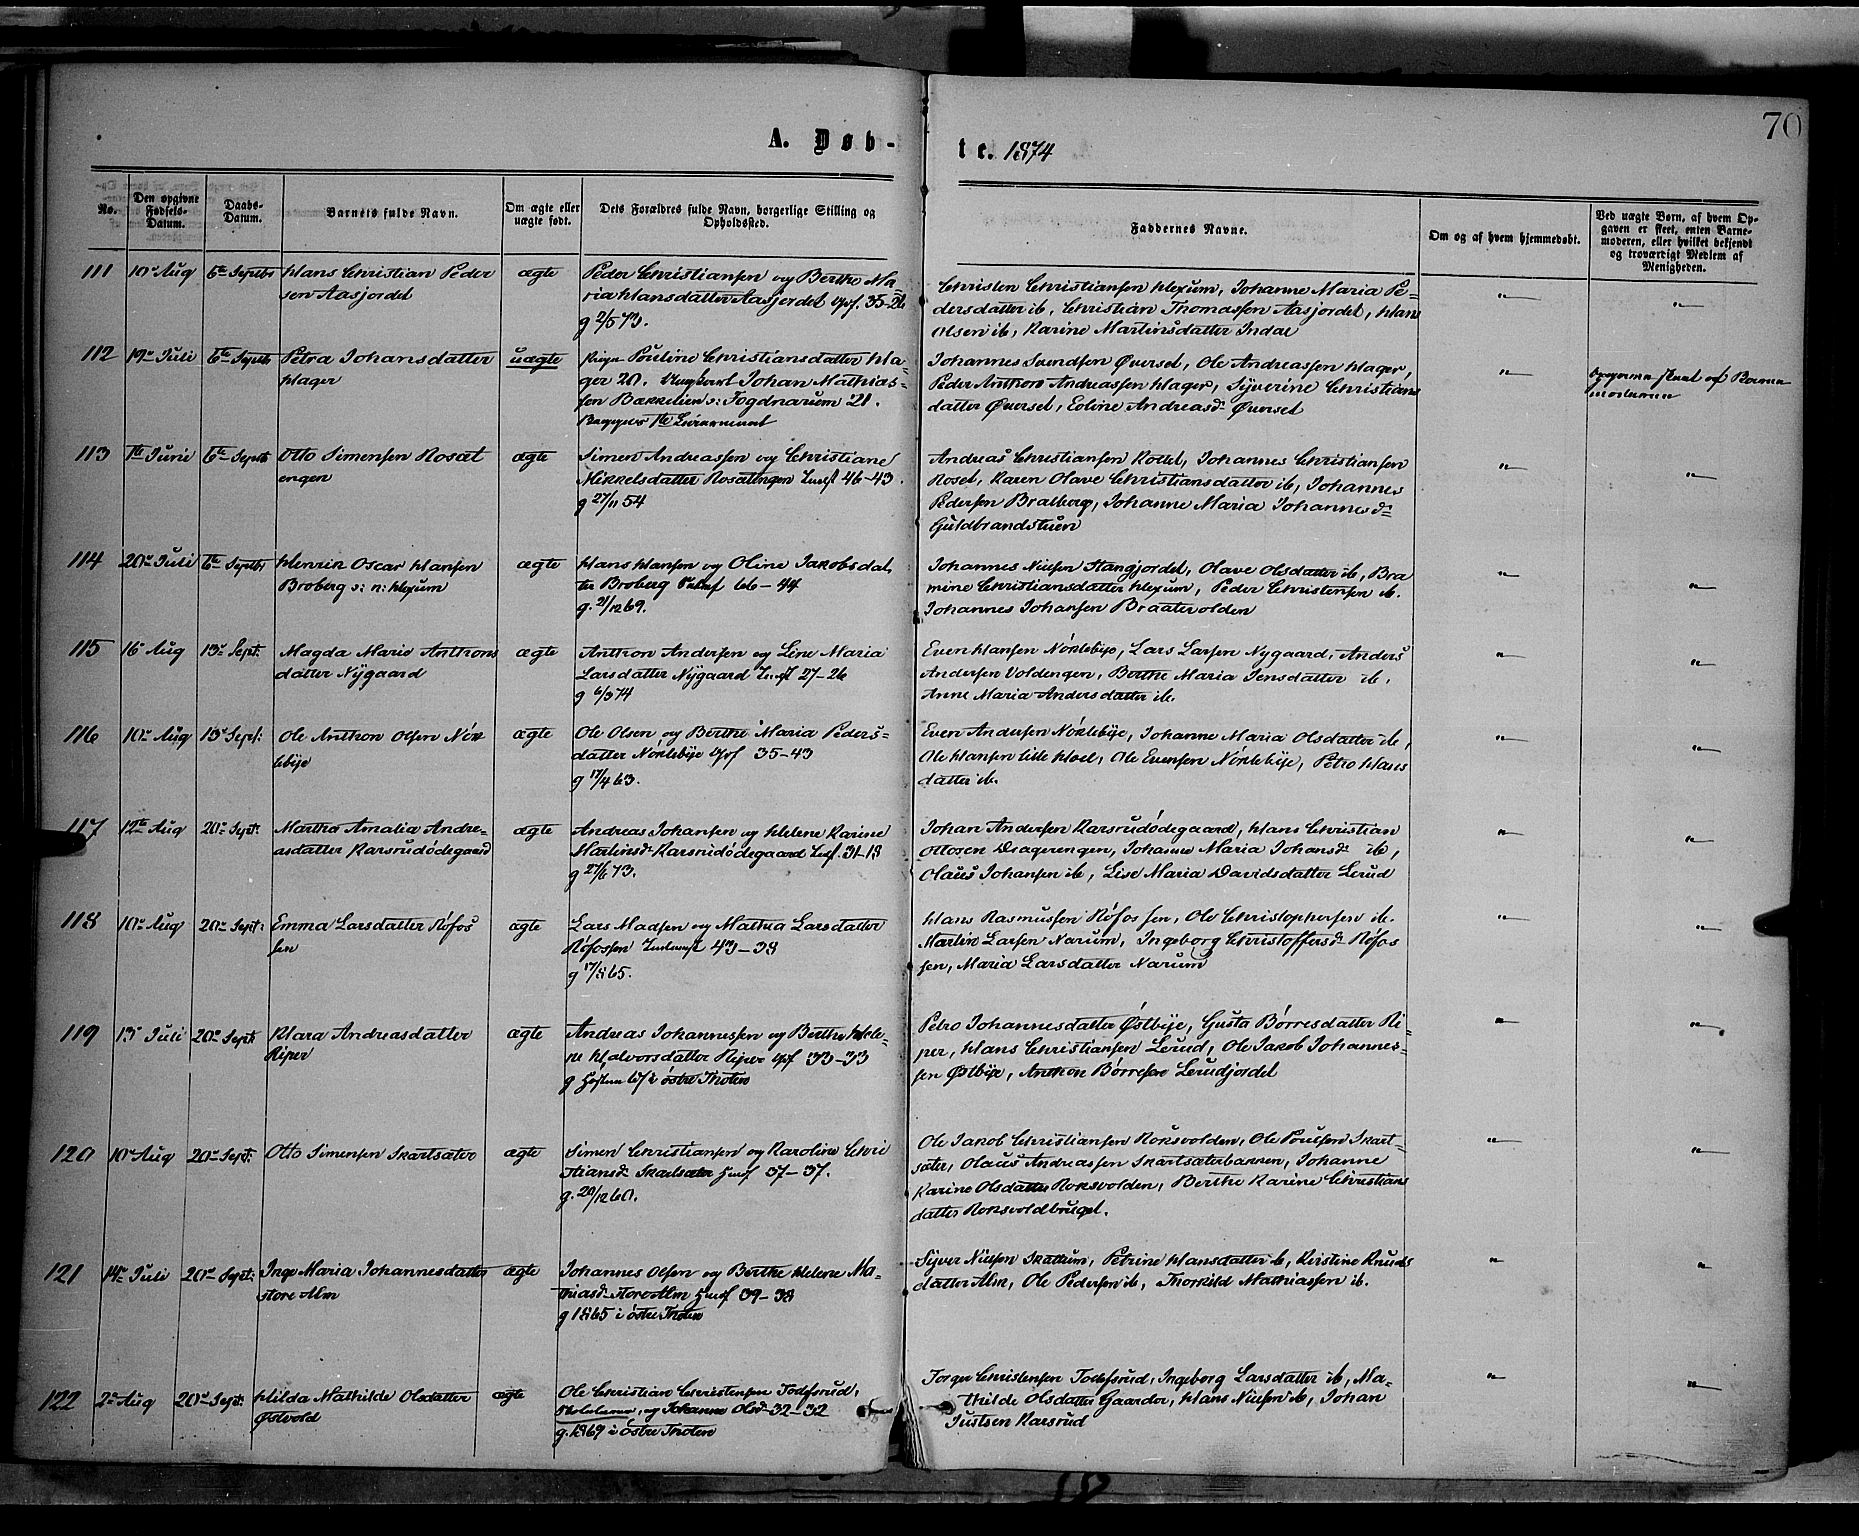 70
A. Døb-
te. 1874
No.
Den opgivne Fødsels-Datum.
Daabs-Datum.
Barnets fulde Navn.
Om ægte eller uægte født.
Dets Forældres fulde Navn, borgerlige Stilling og Opholdssted.
Faddernes Navne.
Om og af hvem hjemmedøbt.
Ved uægte Børn, af hvem Opgaven er skeet, enten Barnemoderen, eller hvilket bekjendt og troværdigt Medlem af Menigheden.
111 10de Aug 6te Septbr Hans Christian Peder
sen Aasjordet
ægte
Peder Christiansen og Berthe Ma-
ria Hansdatter Aasjordet 35-26
g 2/5 73.
Christen Christiansen Hexum, Johanne Maria Pe-
dersdatter ib, Christian Thomassen Aasjordet, Hans
Olsen ib, Karine Martinsdatter Indal
112 19de Juli 6te Septbr Petra Johansdatter
Hager
uægte
Pige Pouline Christiansdatter Ha-
ger 20. Ungkarl Johan Mathias-
sen Bakkelien s: Fogdnarum 21.
Begges 1te Leiermaal
Johannes Svendsen Øverset, Ole Andreassen Hager,
Peder Anthon Andreassen Hager, Syverine Christians
datter Øverset, Eoline Andreasd. Øverset
Opgaven skeet af Barne
moderen
113 1te Juni 6te Septbr Otto Simensen Rosæt
engen
ægte
Simen Andreassen og Christiane
Mikkelsdatter Rosætengen 46-43.
g 27/11 54
Andreas Christiansen Rottet, Johannes Christiansen
Roset, Karen Olave Christiansdatter ib, Johannes
Pedersen Bratberg, Johanne Maria Johannesd.
Guldbrandstuen
114 20de Juli 6te Septbr Henrik Oscar Hansen
Broberg s: n: Hexum
ægte
Hans Hansen og Oline Jakobsdat
ter Broberg 66-44
g. 21/12 69.
Johannes Nielsen Stangjordet, Olave Olsdatter ib, Bra
mine Christiansdatter Hexum, Peder Christensen ib.
Johannes Johansen Braatevolden
115 16 Aug 13de Sept. Magda Marie Anthons
datter Nygaard
ægte
Anthon Andersen og Line Maria
Larsdatter Nygaard 27-26
g 6/3 74
Even Hansen Nøklebye, Lars Larsen Nygaard, Anders
Andersen Voldengen, Berthe Maria Jensdatter ib,
Anne Maria Andersdatter ib.
116 10de Aug 13de Sept. Ole Anthon Olsen Nøk
lebye
ægte
Ole Olsen og Berthe Maria Peders-
datter Nøklebye 35-43
g 17/4 63.
Even Andersen Nøklebye, Johanne Maria Olsdatter ib,
Ole Hansen lille Hoel, Ole Evensen Nøklebye, Petro Hans
datter ib.
117 12te Aug 20de Sept. Martha Amalia Andre-
asdatter Karsrudødegaard
ægte
Andreas Johansen og Helene Karine
Martinsd. Karsrudødegaard 31-19
g 27/6 73.
Johan Andersen Karsrudødegaard, Hans Christian
Ottosen Dragerengen, Johanne Maria Johansd. ib,
Olaus Johansen ib, Lise Maria Davidsdatter Lerud
118 10de Aug 20de Sept. Emma Larsdatter Røfos
sen
ægte
Lars Madsen og Mathea Larsdatter
Røfossen 43-38
g 17/8 65.
Hans Rasmussen Røfossen, Ole Christophersen ib.
Martin Larsen Narum, Ingeborg Christoffersd. Røfos
sen, Maria Larsdatter Narum
119 13de Juli 20de Sept Klara Andreasdatter
Riper
ægte
Andreas Johannessen og Berthe Hele-
ne Halvorsdatter Riper 32-33
g Høsten i østre Thoten
Petro Johannesdatter Østbye, Gusta Børresdatter Ri-
per, Hans Christiansen Lerud, Ole Jakob Johannes-
sen Østbye, Anthon Børresen Lerudjordet
120 10de Aug 20de Sept. Otto Simensen Skartsæter
ægte
Simen Christiansen og Karoline Chri
stiansd. Skartsæter 37-37.
g. 20/12 60.
Ole Jakob Christiansen Roksvolden, Ole Poulsen Skart-
sæter, Olaus Andreassen Skartsæterbakken, Johanne
Karine Olsdatter Roksvolden, Berthe Karine Christians
datter Roksvoldbruget.
121 14de Juli 20de Sept. Inge Maria Johannesdatter
store Alm
ægte
Johannes Olsen og Berthe Helene Ma-
thiasd. store Alm 39-38
g 1865 i østre Thoten
Syver Nielsen Skattum, Petrine Hansdatter ib, Kirstine Knuds
datter Alm, Ole Pedersen ib, Thorkild Mathiassen ib.
122 2de Aug 20de Sept. Hilda Mathilde Olsdatter
Østvold
ægte
Ole Christian Christensen Todefsrud,
og Johanne Olsd 32-32
g. 1869 i østre Thoten
Jorgen Christensen Todefsrud, Ingeborg Larsdatter ib, Ma-
thilde Olsdatter Gaarder, Hans Nielsen ib, Johan
Justsen Karsrud